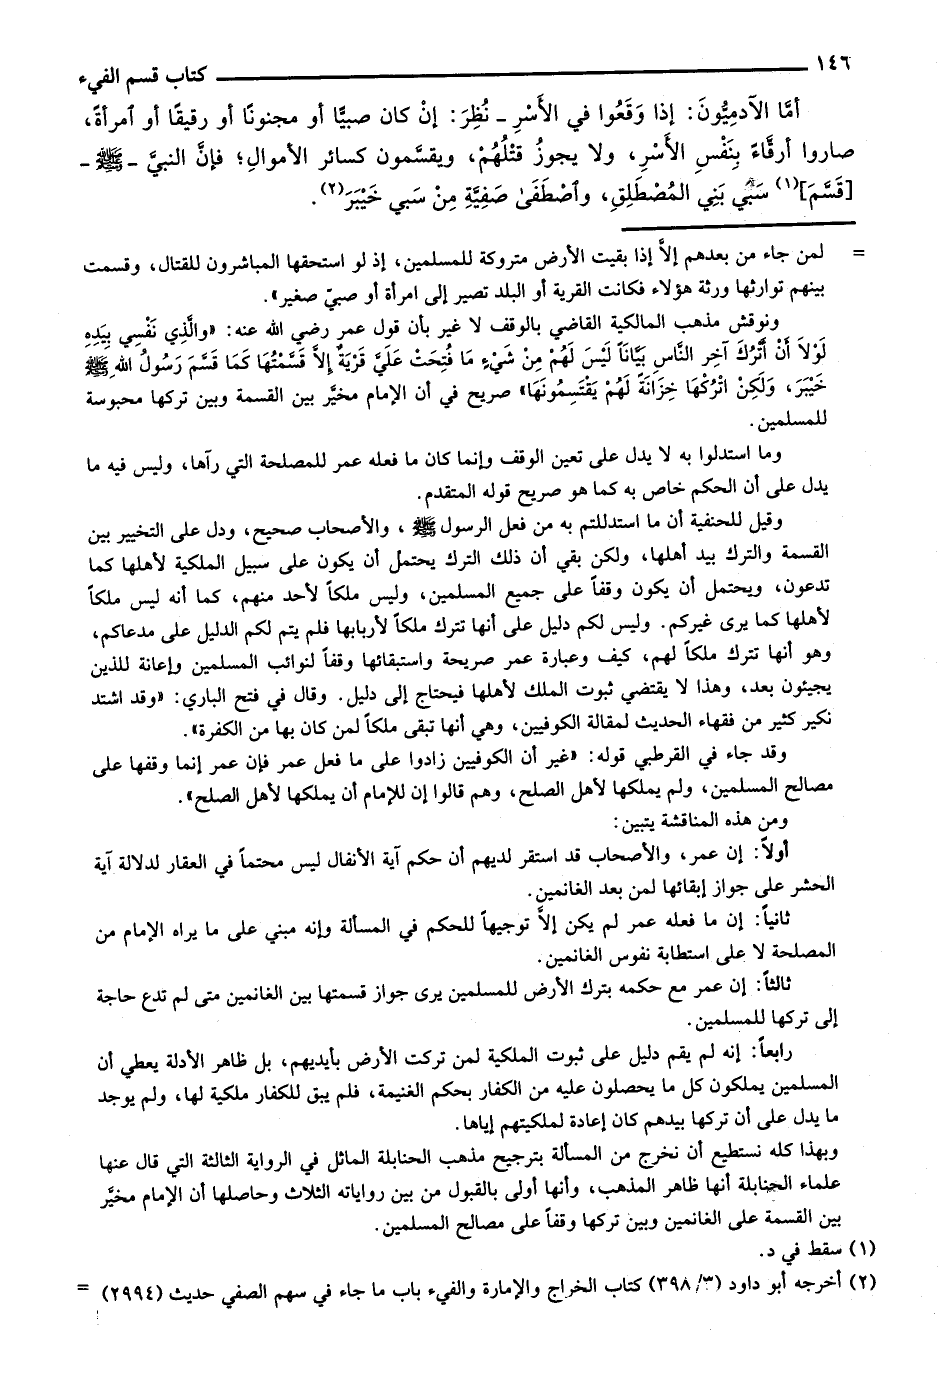 ١٤٦ كتاب قسم الفيء
أمَّا الآدمِيُّونَ: إذا وَقَعُوا في الأَسْرِ ـ نُظِرَ: إنْ كان صبيًّا أو مجنونًا أو رقيقًا أو ٱمرأةً،
صاروا أرقَّاءَ بِنَفْسِ الأَسْرِ، ولا يجوزُ قتْلُهُمْ، ويقسَّمون كسائر الأموالِ؛ فإنَّ النبيَّ ـ ﷺ ـ
[قَسَّمَ](١) سَبْيَ بَنِي المُصْطَلِقِ، وٱصْطَفَىٰ صَفِيَّةَ مِنْ سَبي خَيْبَرَ(٢).
= لمن جاء من بعدهم إلاَّ إذا بقيت الأرض متروكة للمسلمين، إذ لو استحقها المباشرون للقتال، وقسمت
بينهم توارثها ورثة هؤلاء فكانت القرية أو البلد تصير إلى امرأة أو صبيّ صغير».
ونوقش مذهب المالكية القاضي بالوقف لا غير بأن قول عمر رضي الله عنه: «والَّذِي نَفْسِي بِيَدِهِ
لَوْلاَ أَنْ أَتْرُكَ آخِرَ النَّاسِ بَبَّاناً لَيْسَ لَهُمْ مِنْ شَيْءٍ مَا فُتِحَتْ عَلَيَّ قَرْيَةٌ إِلاَّ قَسَّمْتُهَا كَمَا قَسَّمَ رَسُولُ اللهِ ﷺ
خَيْبَرَ، وَلَكِنْ اتْرُكُهَا خِزَانَةً لَهُمْ يَقْتَسِمُونَهَا» صريح في أن الإمام مخيَّر بين القسمة وبين تركها محبوسة
للمسلمين.
وما استدلوا به لا يدل على تعين الوقف وإنما كان ما فعله عمر للمصلحة التي رآها، وليس فيه ما
يدل على أن الحكم خاص به كما هو صريح قوله المتقدم.
وقيل للحنفية أن ما استدللتم به من فعل الرسول ﷺ، والأصحاب صحيح، ودل على التخيير بين
القسمة والترك بيد أهلها، ولكن بقي أن ذلك الترك يحتمل أن يكون على سبيل الملكية لأهلها كما
تدعون، ويحتمل أن يكون وقفاً على جميع المسلمين، وليس ملكاً لأحد منهم، كما أنه ليس ملكاً
لأهلها كما يرى غيركم. وليس لكم دليل على أنها تترك ملكاً لأربابها فلم يتم لكم الدليل على مدعاكم،
وهو أنها تترك ملكاً لهم، كيف وعبارة عمر صريحة واستبقائها وقفاً لنوائب المسلمين وإعانة للذين
يجيئون بعد، وهذا لا يقتضي ثبوت الملك لأهلها فيحتاج إلى دليل. وقال في فتح الباري: «وقد اشتد
نكير كثير من فقهاء الحديث لمقالة الكوفيين، وهي أنها تبقى ملكاً لمن كان بها من الكفرة».
وقد جاء في القرطبي قوله: «غير أن الكوفيين زادوا على ما فعل عمر فإن عمر إنما وقفها على
مصالح المسلمين، ولم يملكها لأهل الصلح، وهم قالوا إن للإمام أن يملكها لأهل الصلح».
ومن هذه المناقشة يتبين:
أولاً: إن عمر، والأصحاب قد استقر لديهم أن حكم آية الأنفال ليس محتماً في العقار لدلالة آية
الحشر على جواز إبقائها لمن بعد الغانمين.
ثانياً: إن ما فعله عمر لم يكن إلاَّ توجيهاً للحكم في المسألة وإنه مبني على ما يراه الإمام من
المصلحة لا على استطابة نفوس الغانمين.
ثالثاً: إن عمر مع حكمه بترك الأرض للمسلمين يرى جواز قسمتها بين الغانمين متى لم تدع حاجة
إلى تركها للمسلمين.
رابعاً: إنه لم يقم دليل على ثبوت الملكية لمن تركت الأرض بأيديهم، بل ظاهر الأدلة يعطي أن
المسلمين يملكون كل ما يحصلون عليه من الكفار بحكم الغنيمة، فلم يبق للكفار ملكية لها، ولم يوجد
ما يدل على أن تركها بيدهم كان إعادة لملكيتهم إياها.
وبهذا كله نستطيع أن نخرج من المسألة بترجيح مذهب الحنابلة الماثل في الرواية الثالثة التي قال عنها
علماء الحنابلة أنها ظاهر المذهب، وأنها أولى بالقبول من بين رواياته الثلاث وحاصلها أن الإمام مخيَّر
بين القسمة على الغانمين وبين تركها وقفاً على مصالح المسلمين.
(١) سقط في د.
(٢) أخرجه أبو داود (٣/ ٣٩٨) كتاب الخراج والإمارة والفيء باب ما جاء في سهم الصفي حديث (٢٩٩٤) =